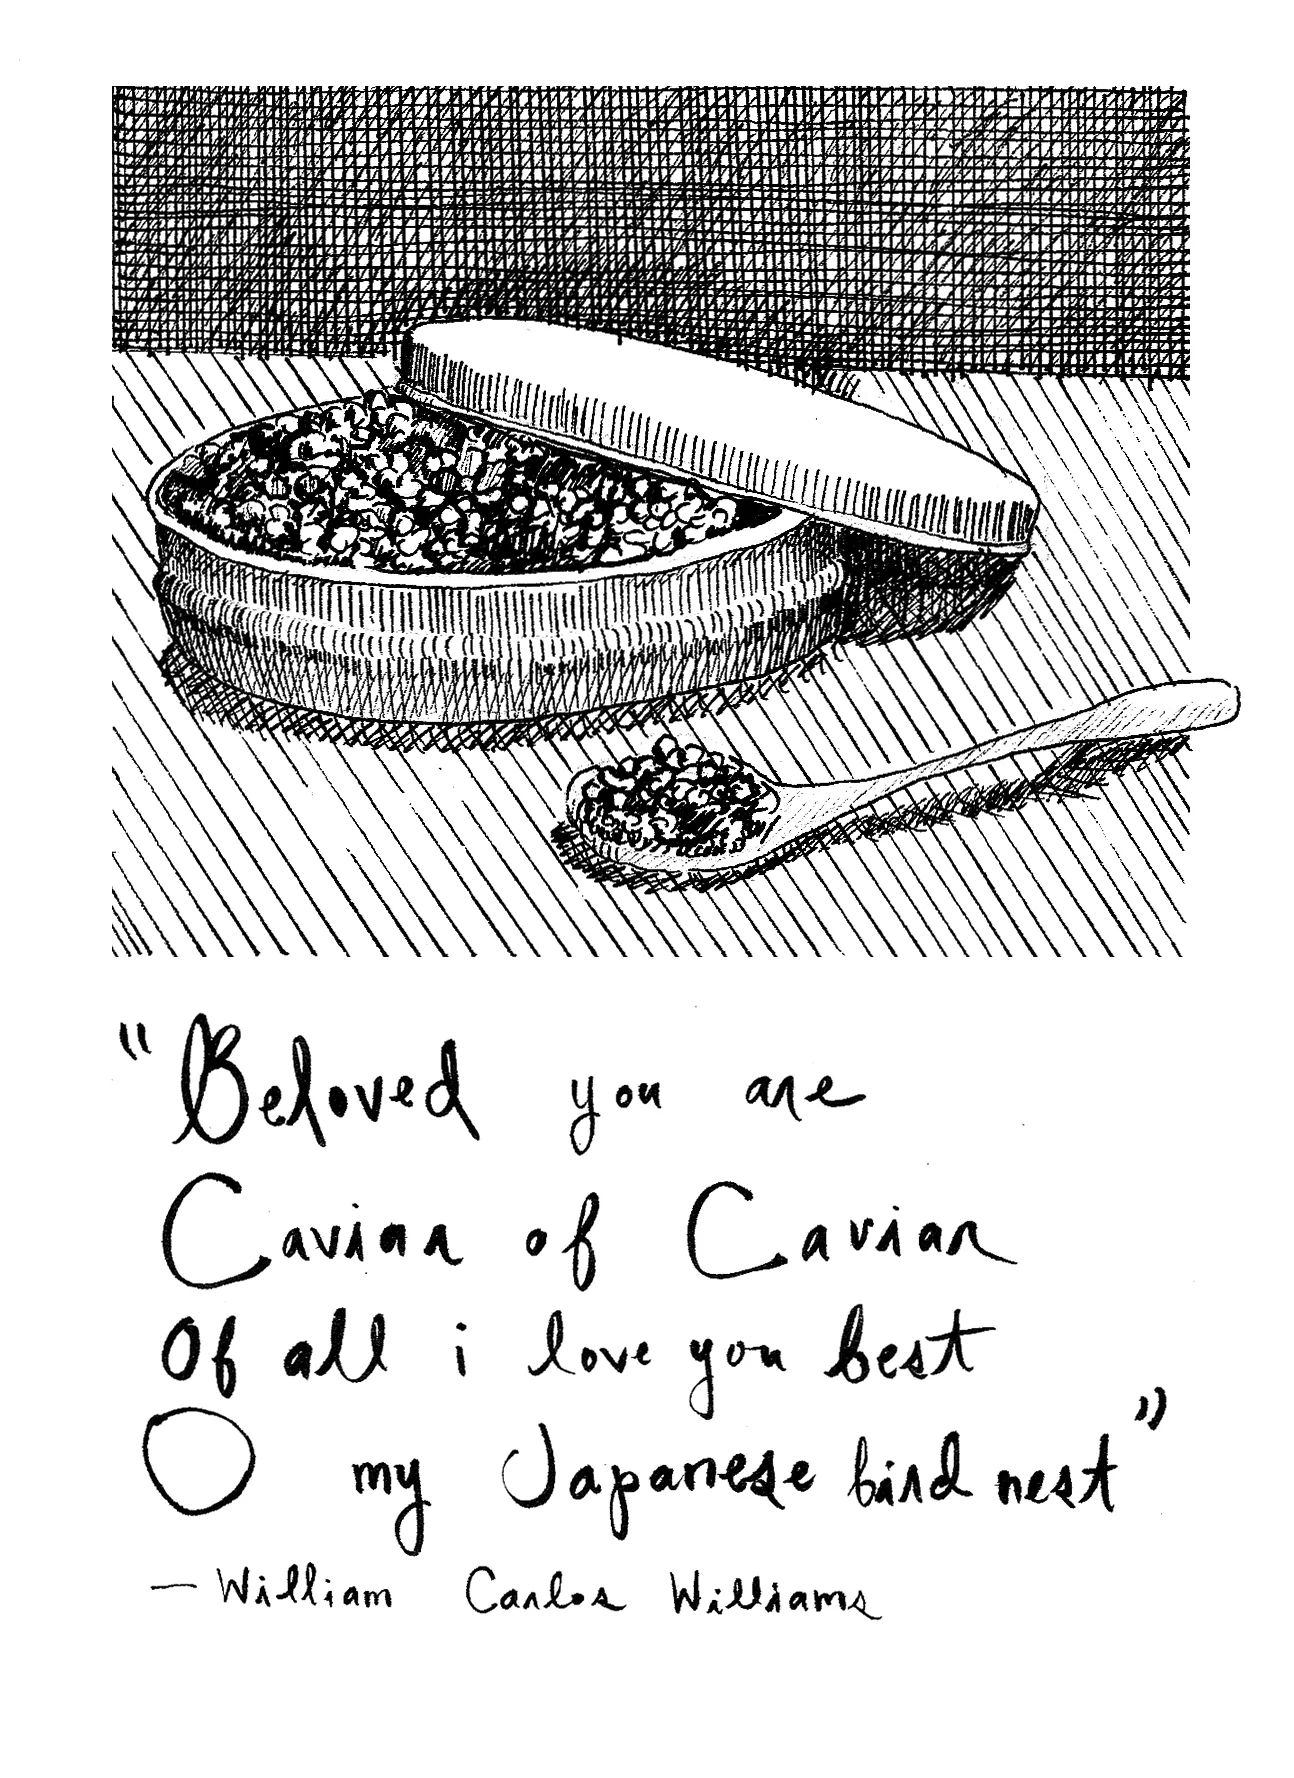 "Beloved you are
Caviar of Caviar
Of all i love you best
O my Japanese bird nest"
— William Carlos Williams